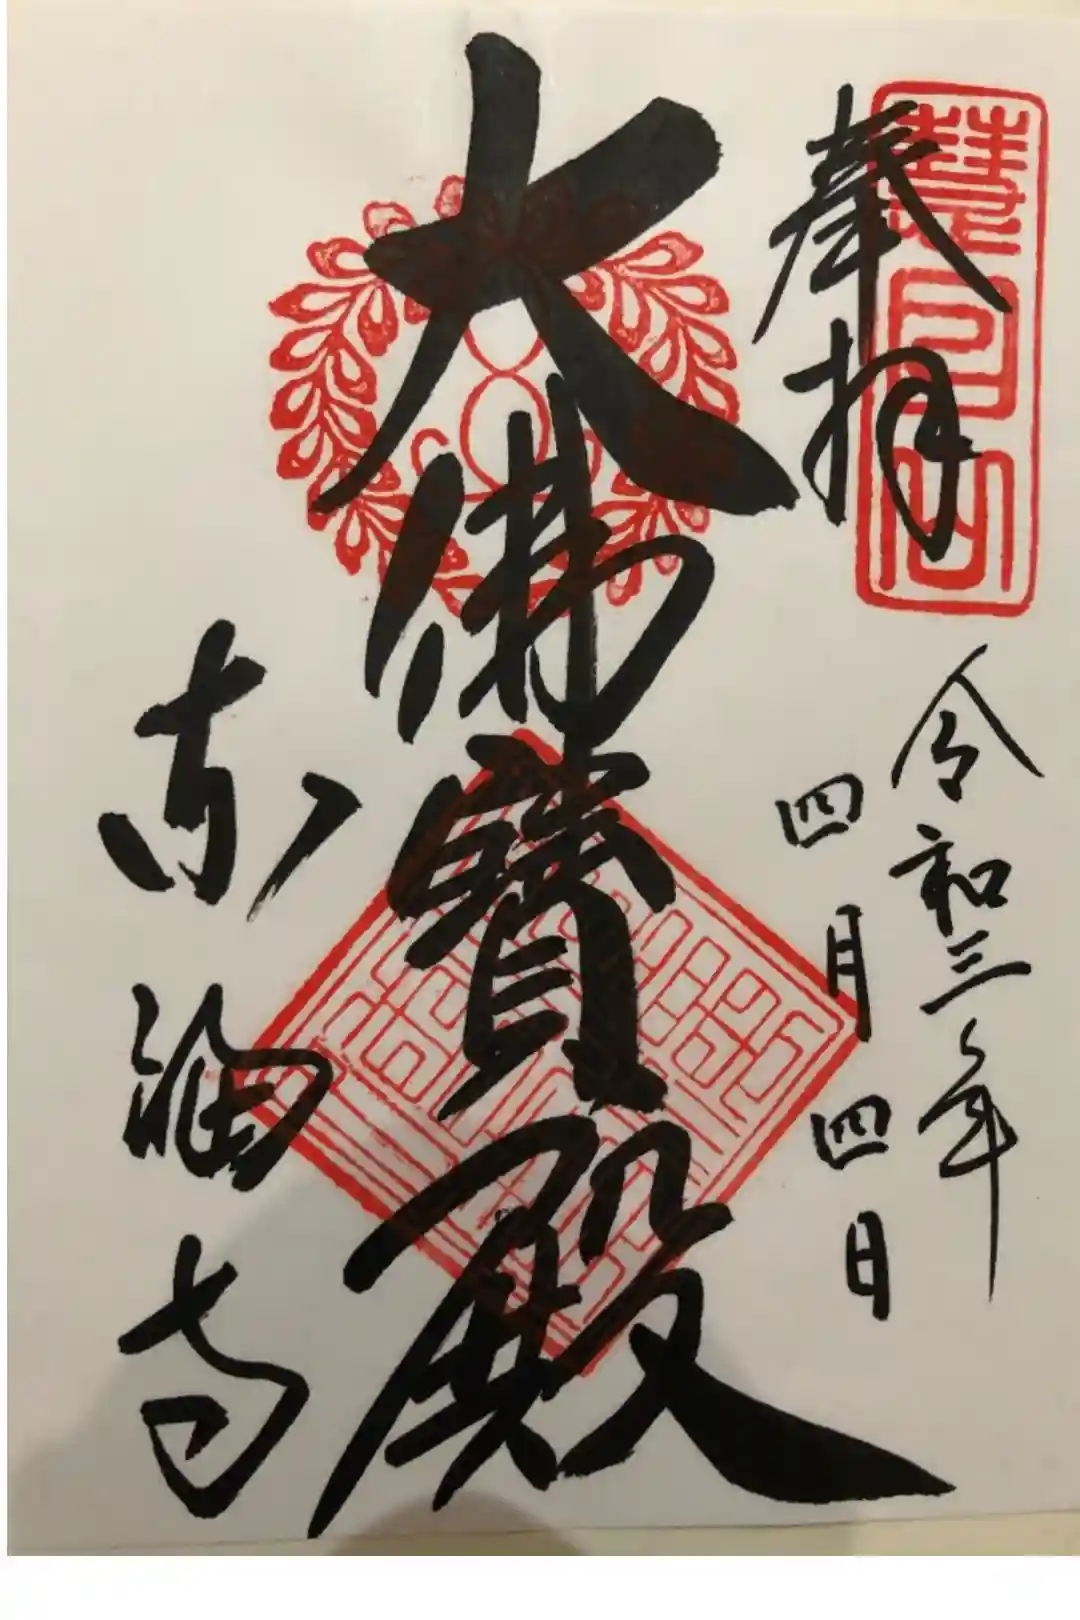 慧日山
奉拝
令和三年
四月四日
大佛寳殿
東福寺